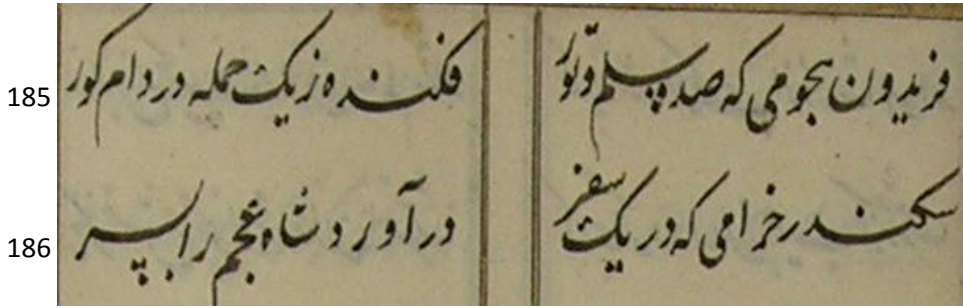 185 فریدون هجومی که صد سلم و تور فکنده ز یک حمله در دام کور
186 سکندر خرامی که در یک سفر در آورد شاه عجم را بسر